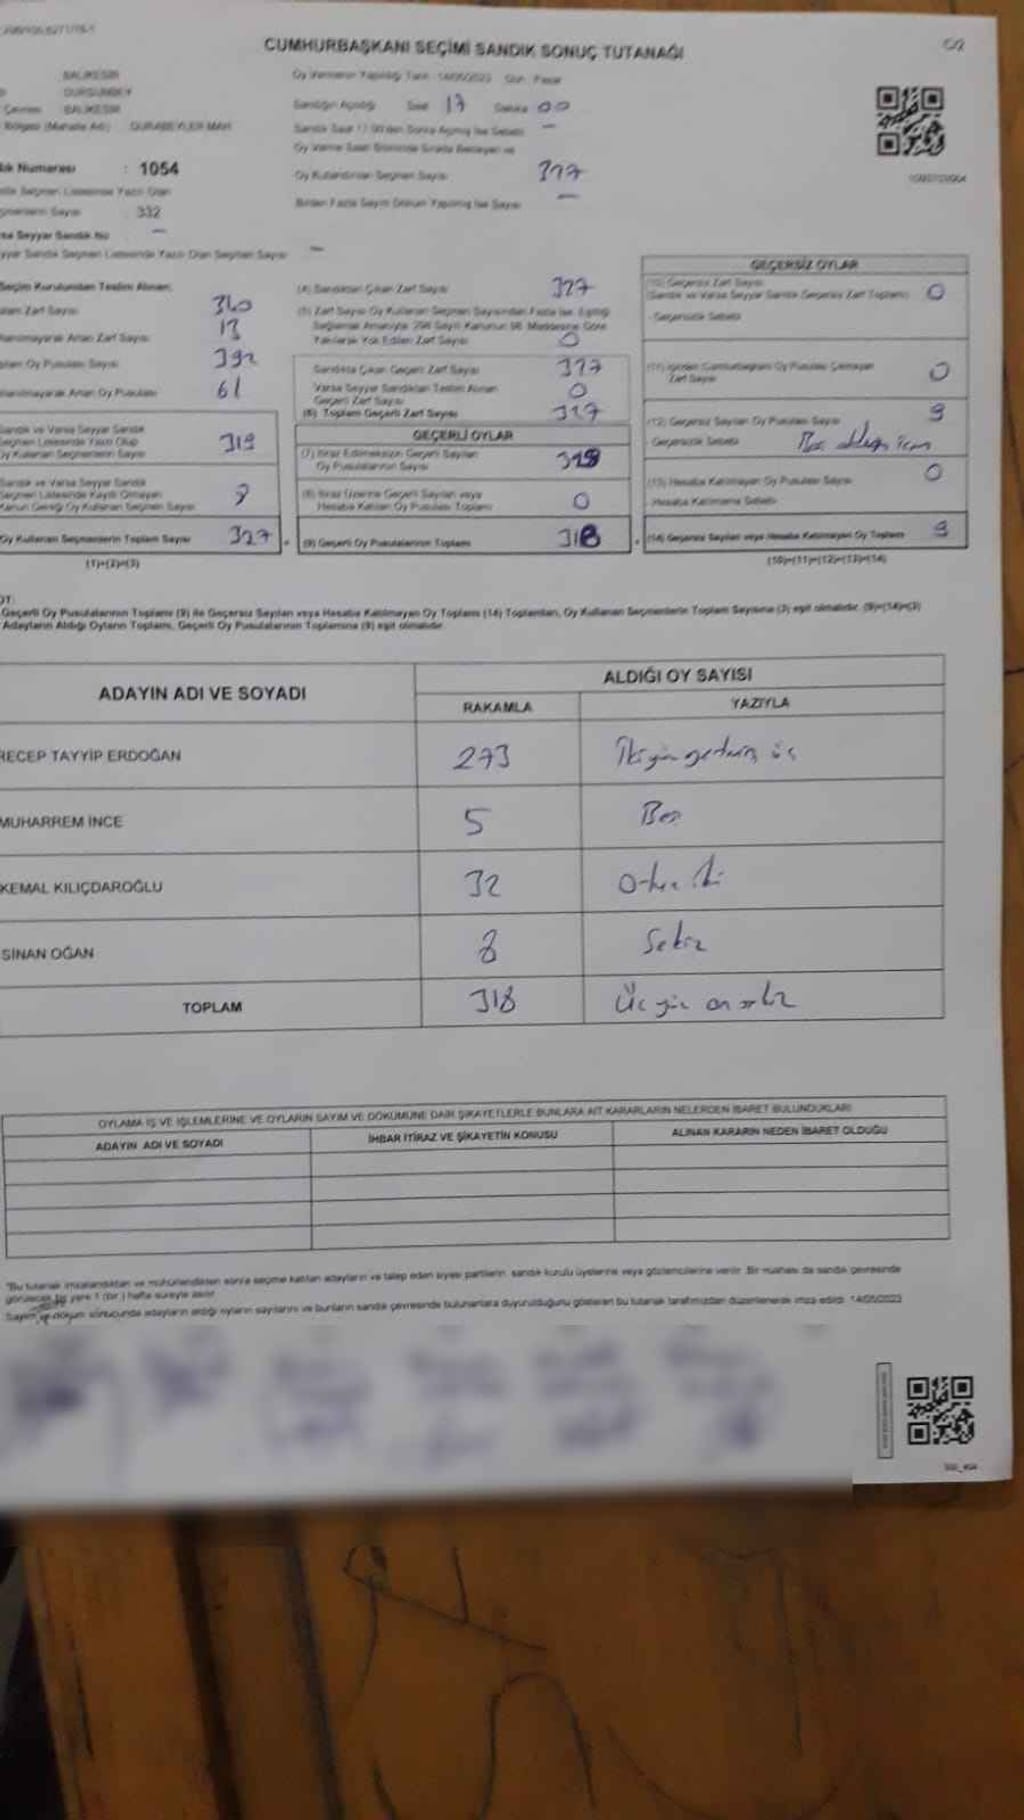 CUMHURBAŞKANI SEÇİMİ SANDIK SONUÇ TUTANAĞI
BALIKESİR
DURSUNBEY
BALIKESİR
Bölgesi (Mahalle Adı) : MAH
Oy Vermenin Yapıldığı Tarih : 14/05/2023 Gün : Pazar
Sandığın Açıldığı Saat 17 Dakika 00
Sandık Saat 17.00'den Sonra Açılmış İse Sebebi —
Oy Verme Saati Bitiminde Sırada Bekleyen ve
Oy Kullandırılan Seçmen Sayısı 327
Birden Fazla Sayım Döküm Yapılmış İse Sayısı —
Numarası : 1054
Seçmen Listesinde Yazılı Olan
Seçmenlerin Sayısı : 332
Varsa Seyyar Sandık No —
Seyyar Sandık Seçmen Listesinde Yazılı Olan Seçmen Sayısı —
Seçim Kurulundan Teslim Alınan
Zarf Sayısı 340
Artan Zarf Sayısı 13
Oy Pusulası Sayısı 392
Artan Oy Pusulası 61
Sandık ve Varsa Seyyar Sandık
Seçmen Listesinde Yazılı Olup
Oy Kullanan Seçmenlerin Sayısı 319
Sandık ve Varsa Seyyar Sandık
Seçmen Listesinde Kayıtlı Olmayan
Kanun Gereği Oy Kullanan Seçmen Sayısı 8
Oy Kullanan Seçmenlerin Toplam Sayısı 327
(1)+(2)=(3)
(4) Sandıktan Çıkan Zarf Sayısı 327
(5) Zarf Sayısı Oy Kullanan Seçmen Sayısından Fazla İse, Eşitliği
Sağlamak Amacıyla 298 Sayılı Kanunun 98. Maddesine Göre
Yakılarak Yok Edilen Zarf Sayısı 0
Sandıkta Çıkan Geçerli Zarf Sayısı 327
Varsa Seyyar Sandıktan Teslim Alınan
Geçerli Zarf Sayısı 0
(6) Toplam Geçerli Zarf Sayısı 327
GEÇERLİ OYLAR
(7) İtiraz Edilmeksizin Geçerli Sayılan
Oy Pusulalarının Sayısı 318
(8) İtiraz Üzerine Geçerli Sayılan veya
Hesaba Katılan Oy Pusulası Toplamı 0
(9) Geçerli Oy Pusulalarının Toplamı 318
GEÇERSİZ OYLAR
(10) Geçersiz Zarf Sayısı
(Sandık ve Varsa Seyyar Sandık Geçersiz Zarf Toplamı) 0
- Geçersizlik Sebebi
(11) İçinden Cumhurbaşkanı Oy Pusulası Çıkmayan
Zarf Sayısı 0
(12) Geçersiz Sayılan Oy Pusulası Sayısı 9
- Geçersizlik Sebebi Boş olduğu için
(13) Hesaba Katılmayan Oy Pusulası Sayısı 0
- Hesaba Katılmama Sebebi
(14) Geçersiz Sayılan veya Hesaba Katılmayan Oy Toplamı 9
(10)+(11)+(12)+(13)=(14)
Geçerli Oy Pusulalarının Toplamı (9) ile Geçersiz Sayılan veya Hesaba Katılmayan Oy Toplamı (14) Toplamları, Oy Kullanan Seçmenlerin Toplam Sayısına (3) eşit olmalıdır. (9)+(14)=(3)
Adayların Aldığı Oyların Toplamı, Geçerli Oy Pusulalarının Toplamına (9) eşit olmalıdır.
ADAYIN ADI VE SOYADI
ALDIĞI OY SAYISI
RAKAMLA YAZIYLA
RECEP TAYYİP ERDOĞAN 273 İkiyüz yetmiş üç
MUHARREM İNCE 5 Beş
KEMAL KILIÇDAROĞLU 32 Otuz iki
SİNAN OĞAN 8 Sekiz
TOPLAM 318 Üç yüz on sekiz
OYLAMA İŞ VE İŞLEMLERİNE VE OYLARIN SAYIM VE DÖKÜMÜNE DAİR ŞİKAYETLERLE BUNLARA AİT KARARLARIN NELERDEN İBARET BULUNDUKLARI
ADAYIN ADI VE SOYADI İHBAR İTİRAZ VE ŞİKAYETİN KONUSU ALINAN KARARIN NEDEN İBARET OLDUĞU
"Bu tutanak imzalandıktan ve mühürlendikten sonra seçime katılan adayların ve talep eden siyasi partilerin, sandık kurulu üyelerine veya gözlemcilerine verilir. Bir nüshası da sandık çevresinde
görülecek bir yere 1 (bir ) hafta süreyle asılır.
Sayım ve döküm sonucunda adayların aldığı oyların sayılarını ve bunların sandık çevresinde bulunanlara duyurulduğunu gösteren bu tutanak tarafımızdan düzenlenerek imza edildi. 14/05/2023